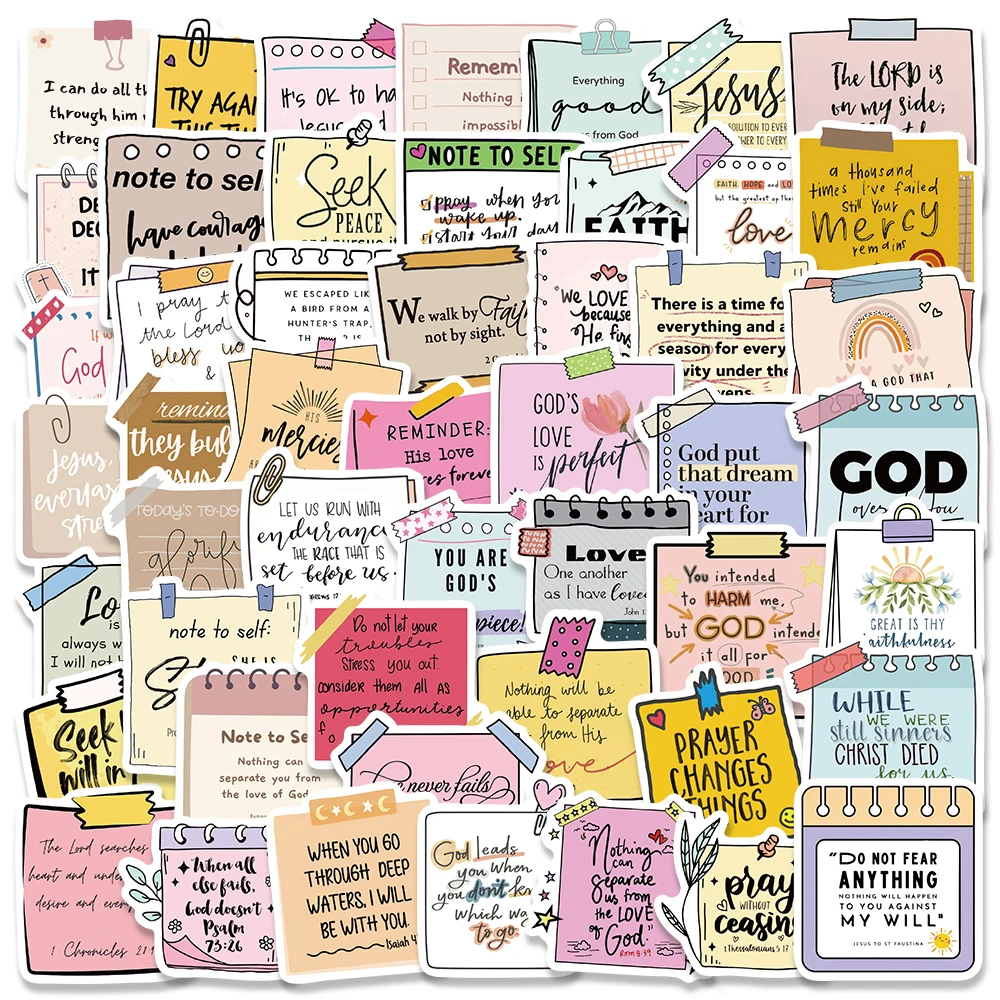 I can do all th
through him
streng
TRY AGAI
It's OK to ha
Jesus
Remem
Nothing i
impossibl
Everything
good
s from God
Jesus
SOLUTION TO EVER
WER TO EVERY
The LORD is
on my side;
note to sel
have courag
Seek
PEACE
and pursue it
NOTE TO SELF
pray when you
wake up.
start your day
FAITH
FAITH, HOPE and LO
but the greatest of the
love
a thousand
times i've failed
Still Your
Mercy
remains
DE
DEC
IT
I pray t
the Lord
bless yo
&
WE ESCAPED LIK
A BIRD FROM A
HUNTER'S TRAP.
We walk by Faith
not by sight.
2 Co
We LOVE
because
He firs
There is a time fo
everything and a
season for every
vity under the
vens
A GOD THAT
If w
God
remind
they bul
Jesus t
HIS
mercies
REMINDER:
His love
res foreve
GOD'S
LOVE
IS perfect
God put
that dream
in your
heart for
GOD
over you
Jesus,
everlas
stre
TODAY'S TO-DO
glorify
LET US RUN WITH
endurance
THE RACE THAT IS
set before us.
YOU ARE
GOD'S
piece!
Love
One another
as I have loved
John 1
You intended
to HARM me,
but GOD intende
it all for
GOOD
GREAT IS THY
faithfulness
Lo
is
always w
I will not
note to self:
SHE IS
Do not let your
troubles
Stress you out.
consider them all as
opportunities
fo
Nothing will be
able to separate
from His
love
WHILE
WE WERE
still sinners
CHRIST DIED
for us
Seek
will in
Note to Se
Nothing can
separate you from
the love of God
e never fails
PRAYER
CHANGES
THINGS
The Lord searches
heart and unde
desire and every
1 Chronicles
When all
else fails,
God doesn't
Psalm
73:26
WHEN YOU GO
THROUGH DEEP
WATERS, I WILL
BE WITH YOU.
Isaiah 4
God leads
you when
you don't kn
which wa
to go.
Nothing
can
Separate
Us from
the LOVE
of God."
Rom 8:39
pray
WITHOUT
ceasin
1 Thessalonians 5:17
"DO NOT FEAR
ANYTHING
NOTHING WILL HAPPEN
TO YOU AGAINST
MY WILL"
JESUS TO ST FAUSTINA